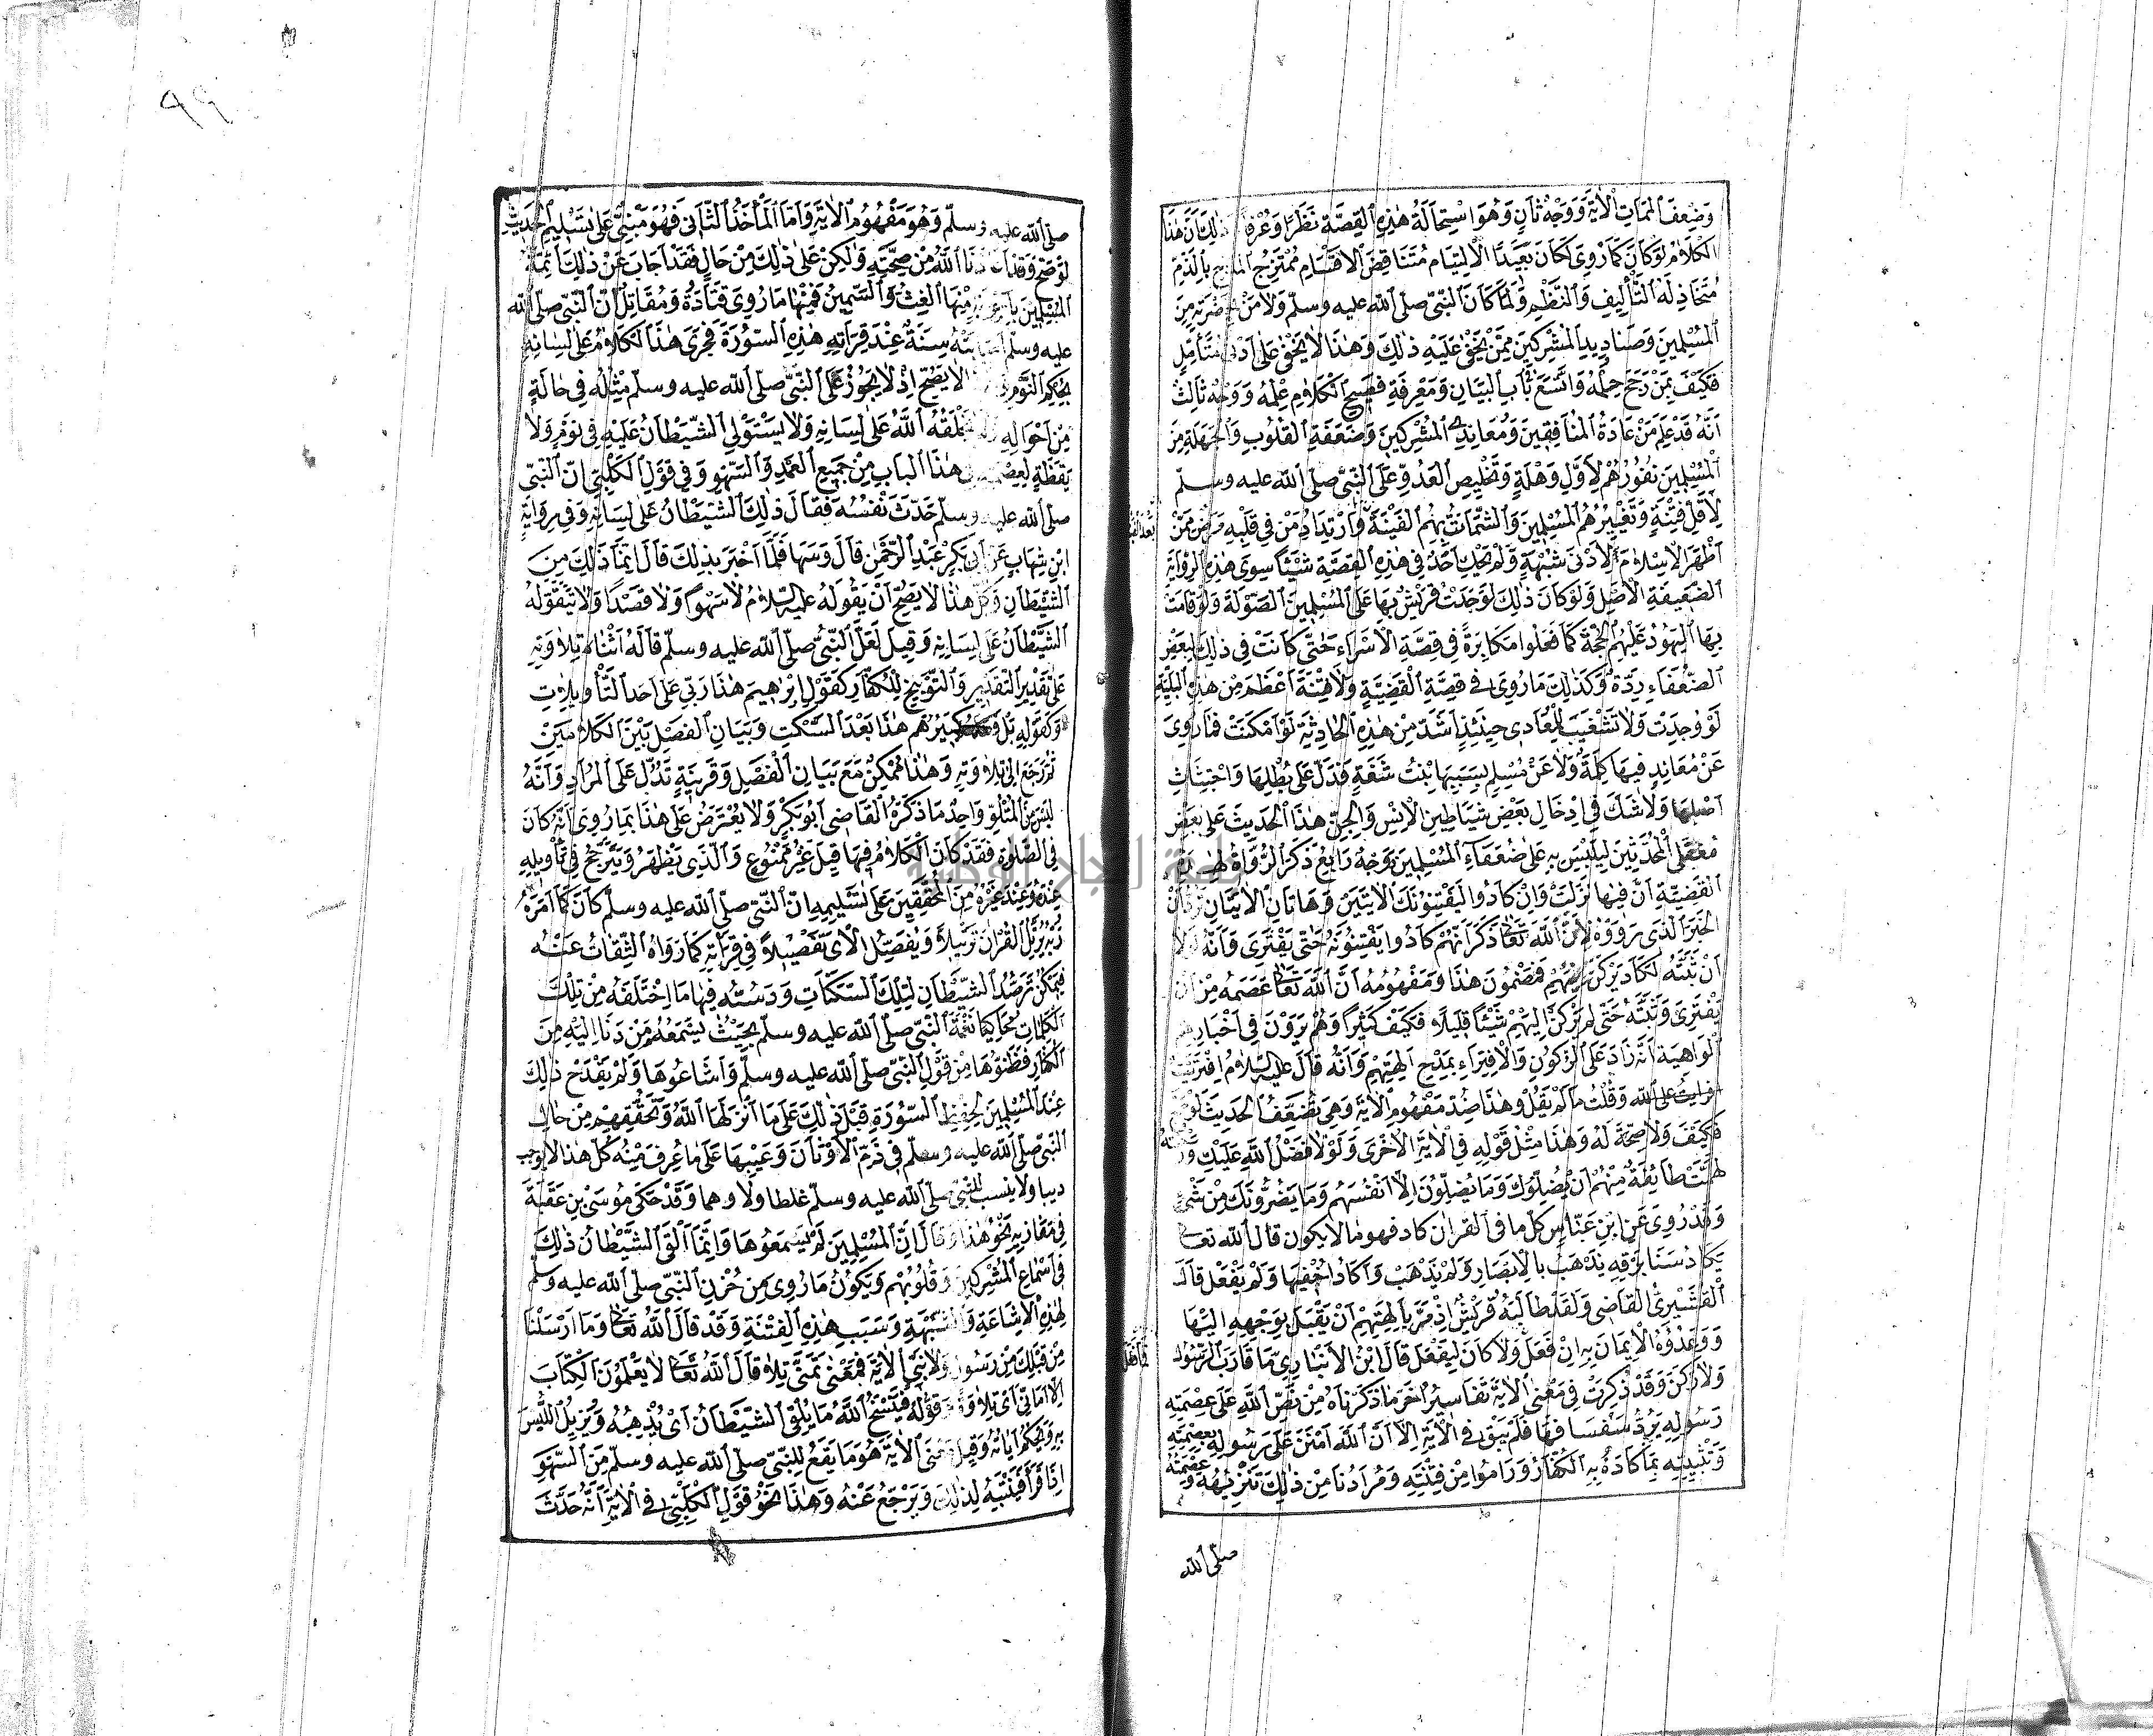 وَضُعِفَ الْمَمَاتِ الْآيَةَ وَوَجْهٌ ثَانٍ وَهُوَ اسْتِحَالَةُ هٰذِهِ الْقِصَّةِ نَظَرًا وَعُرْفًا ذٰلِكَ اَنَّ هٰذَا
الْكَلَامَ لَوْ كَانَ كَمَا رُوِىَ لَكَانَ بَعِيدَ الْاِلْتِيَامِ مُتَنَاقِضَ الْاَقْسَامِ مُمْتَزِجَ الْمَدْحِ بِالذَّمِّ
مُتَخَاذِلَ التَّأْلِيفِ وَالنَّظْمِ وَلَمَّا كَانَ النَّبِىُّ صلى الله عليه وسلم وَلَا مَنْ بِحَضْرَتِهِ مِنَ
الْمُسْلِمِينَ وَصَنَادِيدِ الْمُشْرِكِينَ مِمَّنْ يَخْفَى عَلَيْهِ ذٰلِكَ وَهٰذَا لَا يَخْفَى عَلَى اَدْنَى مُتَأَمِّلٍ
فَكَيْفَ بِمَنْ رَجَحَ حِلْمُهُ وَاتَّسَعَ فِى بَابِ الْبَيَانِ وَمَعْرِفَةِ فَصِيحِ الْكَلَامِ عِلْمُهُ وَوَجْهٌ ثَالِثٌ
اَنَّهُ قَدْ عُلِمَ مِنْ عَادَةِ الْمُنَافِقِينَ وَمُعَانِدِى الْمُشْرِكِينَ وَضَعَفَةِ الْقُلُوبِ وَالْجَهَلَةِ مِنَ
الْمُسْلِمِينَ نُفُورُهُمْ لِاَوَّلِ وَهْلَةٍ وَتَخْلِيصُ الْعَدُوِّ عَلَى النَّبِىِّ صلى الله عليه وسلم
لِاَقَلِّ فِتْنَةٍ وَتَعْيِيرُهُمُ الْمُسْلِمِينَ وَالشَّمَاتُ بِهِمُ الْفَيْنَةَ وَارْتِدَادُ مَنْ فِى قَلْبِهِ مَرَضٌ مِمَّنْ
اَظْهَرَ الْاِسْلَامَ لِاَدْنَى شُبْهَةٍ وَلَمْ يَحْكِ اَحَدٌ فِى هٰذِهِ الْقِصَّةِ شَيْئًا سِوَى هٰذِهِ الرِّوَايَةِ
الضَّعِيفَةِ الْاَصْلِ وَلَوْ كَانَ ذٰلِكَ لَوَجَدَتْ قُرَيْشٌ بِهَا عَلَى الْمُسْلِمِينَ الصَّوْلَةَ وَلَاَقَامَتْ
بِهَا الْيَهُودُ عَلَيْهِمُ الْحُجَّةَ كَمَا فَعَلُوا مُكَابَرَةً فِى قِصَّةِ الْاَسْرَاءِ حَتّٰى كَانَتْ فِى ذٰلِكَ لِبَعْضِ
الضُّعَفَاءِ رِدَّةٌ وَكَذٰلِكَ مَا رُوِىَ فِى قِصَّةِ الْقَضِيَّةِ وَلَا فِتْنَةَ اَعْظَمُ مِنْ هٰذِهِ الْبَلِيَّةِ
لَوْ وُجِدَتْ وَلَا تَشْغِيبَ لِلْمُعَادِى حِينَئِذٍ اَشَدُّ مِنْ هٰذِهِ الْحَادِثَةِ لَوْ اَمْكَنَتْ فَمَا رُوِىَ
عَنْ مُعَانِدٍ فِيهَا كَلِمَةٌ وَلَا عَنْ مُسْلِمٍ بِسَبَبِهَا بِنْتُ شَفَةٍ فَدَلَّ عَلَى بُطْلِهَا وَاجْتِثَاثِ
اَصْلِهَا وَلَا شَكَّ فِى اِدْخَالِ بَعْضِ شَيَاطِينِ الْاِنْسِ وَالْجِنِّ هٰذَا الْحَدِيثَ عَلَى بَعْضِ
مُغَفَّلِى الْمُحَدِّثِينَ لِيُلَبِّسَ بِهِ عَلَى ضُعَفَاءِ الْمُسْلِمِينَ وَوَجْهٌ رَابِعٌ ذَكَرَ الرُّوَاةُ لِهٰذِهِ
الْقَضِيَّةِ اَنَّ فِيهَا نَزَلَتْ وَاِنْ كَادُوا لَيَفْتِنُونَكَ الْآيَتَيْنِ وَهَاتَانِ الْآيَتَانِ تَرُدَّانِ
الْخَبَرَ الَّذِى رَوَوْهُ لِاَنَّ اللّٰهَ تَعَالَى ذَكَرَ اَنَّهُمْ كَادُوا يَفْتِنُونَهُ حَتّٰى يَفْتَرِىَ وَاَنَّهُ لَوْلَا
اَنْ ثَبَّتَهُ لَكَادَ يَرْكَنُ اِلَيْهِمْ فَمَضْمُونُ هٰذَا وَمَفْهُومُهُ اَنَّ اللّٰهَ تَعَالَى عَصَمَهُ مِنْ اَنْ
يَفْتَرِىَ وَثَبَّتَهُ حَتّٰى لَمْ يَرْكَنْ اِلَيْهِمْ شَيْئًا قَلِيلًا فَكَيْفَ كَثِيرًا وَهُمْ يَرْوُونَ فِى اَخْبَارِهِمُ
الْوَاهِيَةِ اَنَّهُ زَادَ عَلَى الرُّكُونِ وَالْاِفْتِرَاءِ بِمَدْحِ اٰلِهَتِهِمْ وَاَنَّهُ قَالَ عليه السلام افْتَرَيْتُ
على الله وَقُلْتُ مَا لَمْ يَقُلْ وَهٰذَا ضِدُّ مَفْهُومِ الْآيَةِ وَهِىَ تُضَعِّفُ الْحَدِيثَ لَوْ صَحَّ
فَكَيْفَ وَلَا صِحَّةَ لَهُ وَهٰذَا مِثْلُ قَوْلِهِ فِى الْآيَةِ الْاُخْرَى وَلَوْلَا فَضْلُ اللّٰهِ عَلَيْكَ وَرَحْمَتُهُ
لَهَمَّتْ طَائِفَةٌ مِنْهُمْ اَنْ يُضِلُّوكَ وَمَا يُضِلُّونَ اِلَّا اَنْفُسَهُمْ وَمَا يَضُرُّونَكَ مِنْ شَىْءٍ
وَقَدْ رُوِىَ عَنِ ابْنِ عَبَّاسٍ كل ما فى القران كاد فهو ما لا يكون قال الله تعالى
يَكَادُ سَنَا بَرْقِهِ يَذْهَبُ بِالْاَبْصَارِ وَلَمْ يَذْهَبْ وَاَكَادُ اُخْفِيهَا وَلَمْ يَفْعَلْ قَالَ
الْقُشَيْرِىُّ الْقَاضِى وَلَقَدْ طَالَبَهُ قُرَيْشٌ اِذْ مَرَّ بِاٰلِهَتِهِمْ اَنْ يُقْبِلَ بِوَجْهِهِ اِلَيْهَا
وَوَعَدُوهُ الْاِيمَانَ بِهِ اِنْ فَعَلَ وَلَا كَانَ لِيَفْعَلَ قَالَ ابْنُ الْاَنْبَارِىِّ مَا قَارَبَ الرَّسُولُ
وَلَا رَكَنَ وَقَدْ ذُكِرَتْ فِى مَعْنَى الْآيَةِ تَفَاسِيرُ اُخَرُ مَا ذَكَرْنَاهُ مِنْ نَصِّ اللّٰهِ عَلَى عِصْمَةِ
رَسُولِهِ يَرُدُّ سَفْسَافَهَا فَلَمْ يَبْقَ فِى الْآيَةِ اِلَّا اَنَّ اللّٰهَ امْتَنَّ عَلَى رَسُولِهِ بِعِصْمَتِهِ
وَتَثْبِيتِهِ بِمَا كَادَهُ بِهِ الْكُفَّارُ وَرَامُوا مِنْ فِتْنَتِهِ وَمُرَادُنَا مِنْ ذٰلِكَ تَنْزِيهُهُ وَعِصْمَتُهُ
صلى الله
صلى الله عليه وسلم وَهُوَ مَفْهُومُ الْآيَةِ وَاَمَّا الْمَأْخَذُ الثَّانِى فَهُوَ مَبْنِىٌّ عَلَى تَسْلِيمِ الْحَدِيثِ
لَوْ صَحَّ وَقَدْ اَعَاذَنَا اللّٰهُ مِنْ صِحَّتِهِ وَلٰكِنْ عَلَى ذٰلِكَ مِنْ حَالٍ فَقَدْ اَجَابَ عَنْ ذٰلِكَ اَئِمَّةُ
الْمُسْلِمِينَ بِاَجْوِبَةٍ مِنْهَا الْغَثُّ وَالسَّمِينُ فَمِنْهَا مَا رَوَى قَتَادَةُ وَمُقَاتِلٌ اَنَّ النَّبِىَّ صلى الله
عليه وسلم اَصَابَتْهُ سِنَةٌ عِنْدَ قِرَاءَتِهِ هٰذِهِ السُّورَةَ فَجَرَى هٰذَا الْكَلَامُ عَلَى لِسَانِهِ
بِحُكْمِ النَّوْمِ لَا يَصِحُّ اِذْ لَا يَجُوزُ عَلَى النَّبِىِّ صلى الله عليه وسلم مِثْلُهُ فِى حَالَةٍ
مِنْ اَحْوَالِهِ وَلَا يَخْلُقُهُ اللّٰهُ عَلَى لِسَانِهِ وَلَا يَسْتَوْلِى الشَّيْطَانُ عَلَيْهِ فِى نَوْمٍ وَلَا
يَقَظَةٍ لِعِصْمَتِهِ فِى هٰذَا الْبَابِ مِنْ جَمِيعِ الْعَمْدِ وَالسَّهْوِ وَفِى قَوْلِ الْكَلْبِىِّ اِنَّ النَّبِىَّ
صلى الله عليه وسلم حَدَّثَ نَفْسَهُ فَقَالَ ذٰلِكَ الشَّيْطَانُ عَلَى لِسَانِهِ وَفِى رِوَايَةِ
ابْنِ شِهَابٍ عَنْ اَبِى بَكْرِ عَبْدِ الرَّحْمٰنِ قَالَ وَسَهَا فَلَمَّا اُخْبِرَ بِذٰلِكَ قَالَ اِنَّمَا ذٰلِكَ مِنَ
الشَّيْطَانِ وَكُلُّ هٰذَا لَا يَصِحُّ اَنْ يَقُولَهُ عليه السلام لَا سَهْوًا وَلَا قَصْدًا وَلَا يَتَقَوَّلَهُ
الشَّيْطَانُ عَلَى لِسَانِهِ وَقِيلَ لَعَلَّ النَّبِىَّ صلى الله عليه وسلم قَالَهُ اَثْنَاءَ تِلَاوَتِهِ
عَلَى تَقْدِيرِ التَّقْرِيرِ وَالتَّوْبِيخِ لِلْكُفَّارِ كَقَوْلِ اِبْرٰهِيمَ هٰذَا رَبِّى عَلَى اَحَدِ التَّأْوِيلَاتِ
وَكَقَوْلِهِ بَلْ فَعَلَهُ كَبِيرُهُمْ هٰذَا بَعْدَ السَّكْتِ وَبَيَانِ الْفَصْلِ بَيْنَ الْكَلَامَيْنِ
ثُمَّ رَجَعَ اِلَى تِلَاوَتِهِ وَهٰذَا مُمْكِنٌ مَعَ بَيَانِ الْفَصْلِ وَقَرِينَةٍ تَدُلُّ عَلَى الْمُرَادِ وَاَنَّهُ
لَيْسَ مِنَ الْمَتْلُوِّ وَاحِدُ مَا ذَكَرَهُ الْقَاضِى اَبُو بَكْرٍ وَلَا يُعْتَرَضُ عَلَى هٰذَا بِمَا رُوِىَ اَنَّهُ كَانَ
فِى الصَّلٰوةِ فَقَدْ كَانَ الْكَلَامُ فِيهَا قَبْلُ غَيْرَ مَمْنُوعٍ وَالَّذِى يَظْهَرُ وَيَتَرَجَّحُ فِى تَأْوِيلِهِ
عِنْدَهُ وَعِنْدَ غَيْرِهِ مِنَ الْمُحَقِّقِينَ عَلَى تَسْلِيمِهِ اَنَّ النَّبِىَّ صلى الله عليه وسلم كَانَ كَمَا اَمَرَهُ
رَبُّهُ يُرَتِّلُ الْقُرْاٰنَ تَرْتِيلًا وَيُفَصِّلُ الْاٰىَ تَفْصِيلًا فِى قِرَاءَتِهِ كَمَا رَوَاهُ الثِّقَاتُ عَنْهُ
فَيُمْكِنُ تَرَصُّدُ الشَّيْطَانِ لِتِلْكَ السَّكَتَاتِ وَدَسُّهُ فِيهَا مَا اخْتَلَقَهُ مِنْ تِلْكَ
الْكَلِمَاتِ مُحَاكِيًا نَغْمَةَ النَّبِىِّ صلى الله عليه وسلم بِحَيْثُ يَسْمَعُهُ مَنْ دَنَا اِلَيْهِ مِنَ
الْكُفَّارِ فَظَنُّوهَا مِنْ قَوْلِ النَّبِىِّ صلى الله عليه وسلم وَاَشَاعُوهَا وَلَمْ يَقْدَحْ ذٰلِكَ
عِنْدَ الْمُسْلِمِينَ لِحِفْظِ السُّورَةِ قَبْلَ ذٰلِكَ عَلَى مَا اَنْزَلَهَا اللّٰهُ وَتَحَقُّقِهِمْ مِنْ حَالِ
النَّبِىِّ صلى الله عليه وسلم فِى ذَمِّ الْاَوْثَانِ وَعَيْبِهَا عَلَى مَا عُرِفَ مِنْهُ كُلُّ هٰذَا لَا يُوجِبُ
ولا ينسب للنبى صلى الله عليه وسلم غلطا ولا وهما وَقَدْ حَكَى مُوسَى بْنِ عُقْبَةَ
فِى مَغَازِيهِ نَحْوَ هٰذَا وَقَالَ اِنَّ الْمُسْلِمِينَ لَمْ يَسْمَعُوهَا وَاِنَّمَا اَلْقَى الشَّيْطَانُ ذٰلِكَ
فِى اَسْمَاعِ الْمُشْرِكِينَ وَقُلُوبِهِمْ وَيَكُونُ مَا رُوِىَ مِنْ حُزْنِ النَّبِىِّ صلى الله عليه وسلم
لِهٰذِهِ الْاِشَاعَةِ وَالشُّبْهَةِ وَسَبَبِ هٰذِهِ الْفِتْنَةِ وَقَدْ قَالَ اللّٰهُ تَعَالَى وَمَا اَرْسَلْنَا
مِنْ قَبْلِكَ مِنْ رَسُولٍ وَلَا نَبِىٍّ الْآيَةَ فَمَعْنَى تَمَنَّى تَلَا قَالَ اللّٰهُ تَعَالَى لَا يَعْلَمُونَ الْكِتَابَ
اِلَّا اَمَانِىَّ اَىْ تِلَاوَةً وَقَوْلُهُ فَيَنْسَخُ اللّٰهُ مَا يُلْقِى الشَّيْطَانُ اَىْ يُذْهِبُهُ وَيُزِيلُ اللَّبْسَ
بِهِ وَيُحْكِمُ اٰيَاتِهِ وَقِيلَ مَعْنَى الْآيَةِ هُوَ مَا يَقَعُ لِلنَّبِىِّ صلى الله عليه وسلم مِنَ السَّهْوِ
اِذَا قَرَأَ فَيَنْتَبِهُ لِذٰلِكَ وَيَرْجِعُ عَنْهُ وَهٰذَا نَحْوُ قَوْلِ الْكَلْبِىِّ فِى الْآيَةِ اَنَّهُ حَدَّثَ